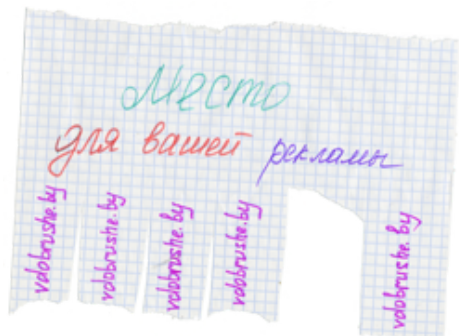 Место
для вашей рекламы
vdobrushe.by
vdobrushe.by
vdobrushe.by
vdobrushe.by
vdobrushe.by